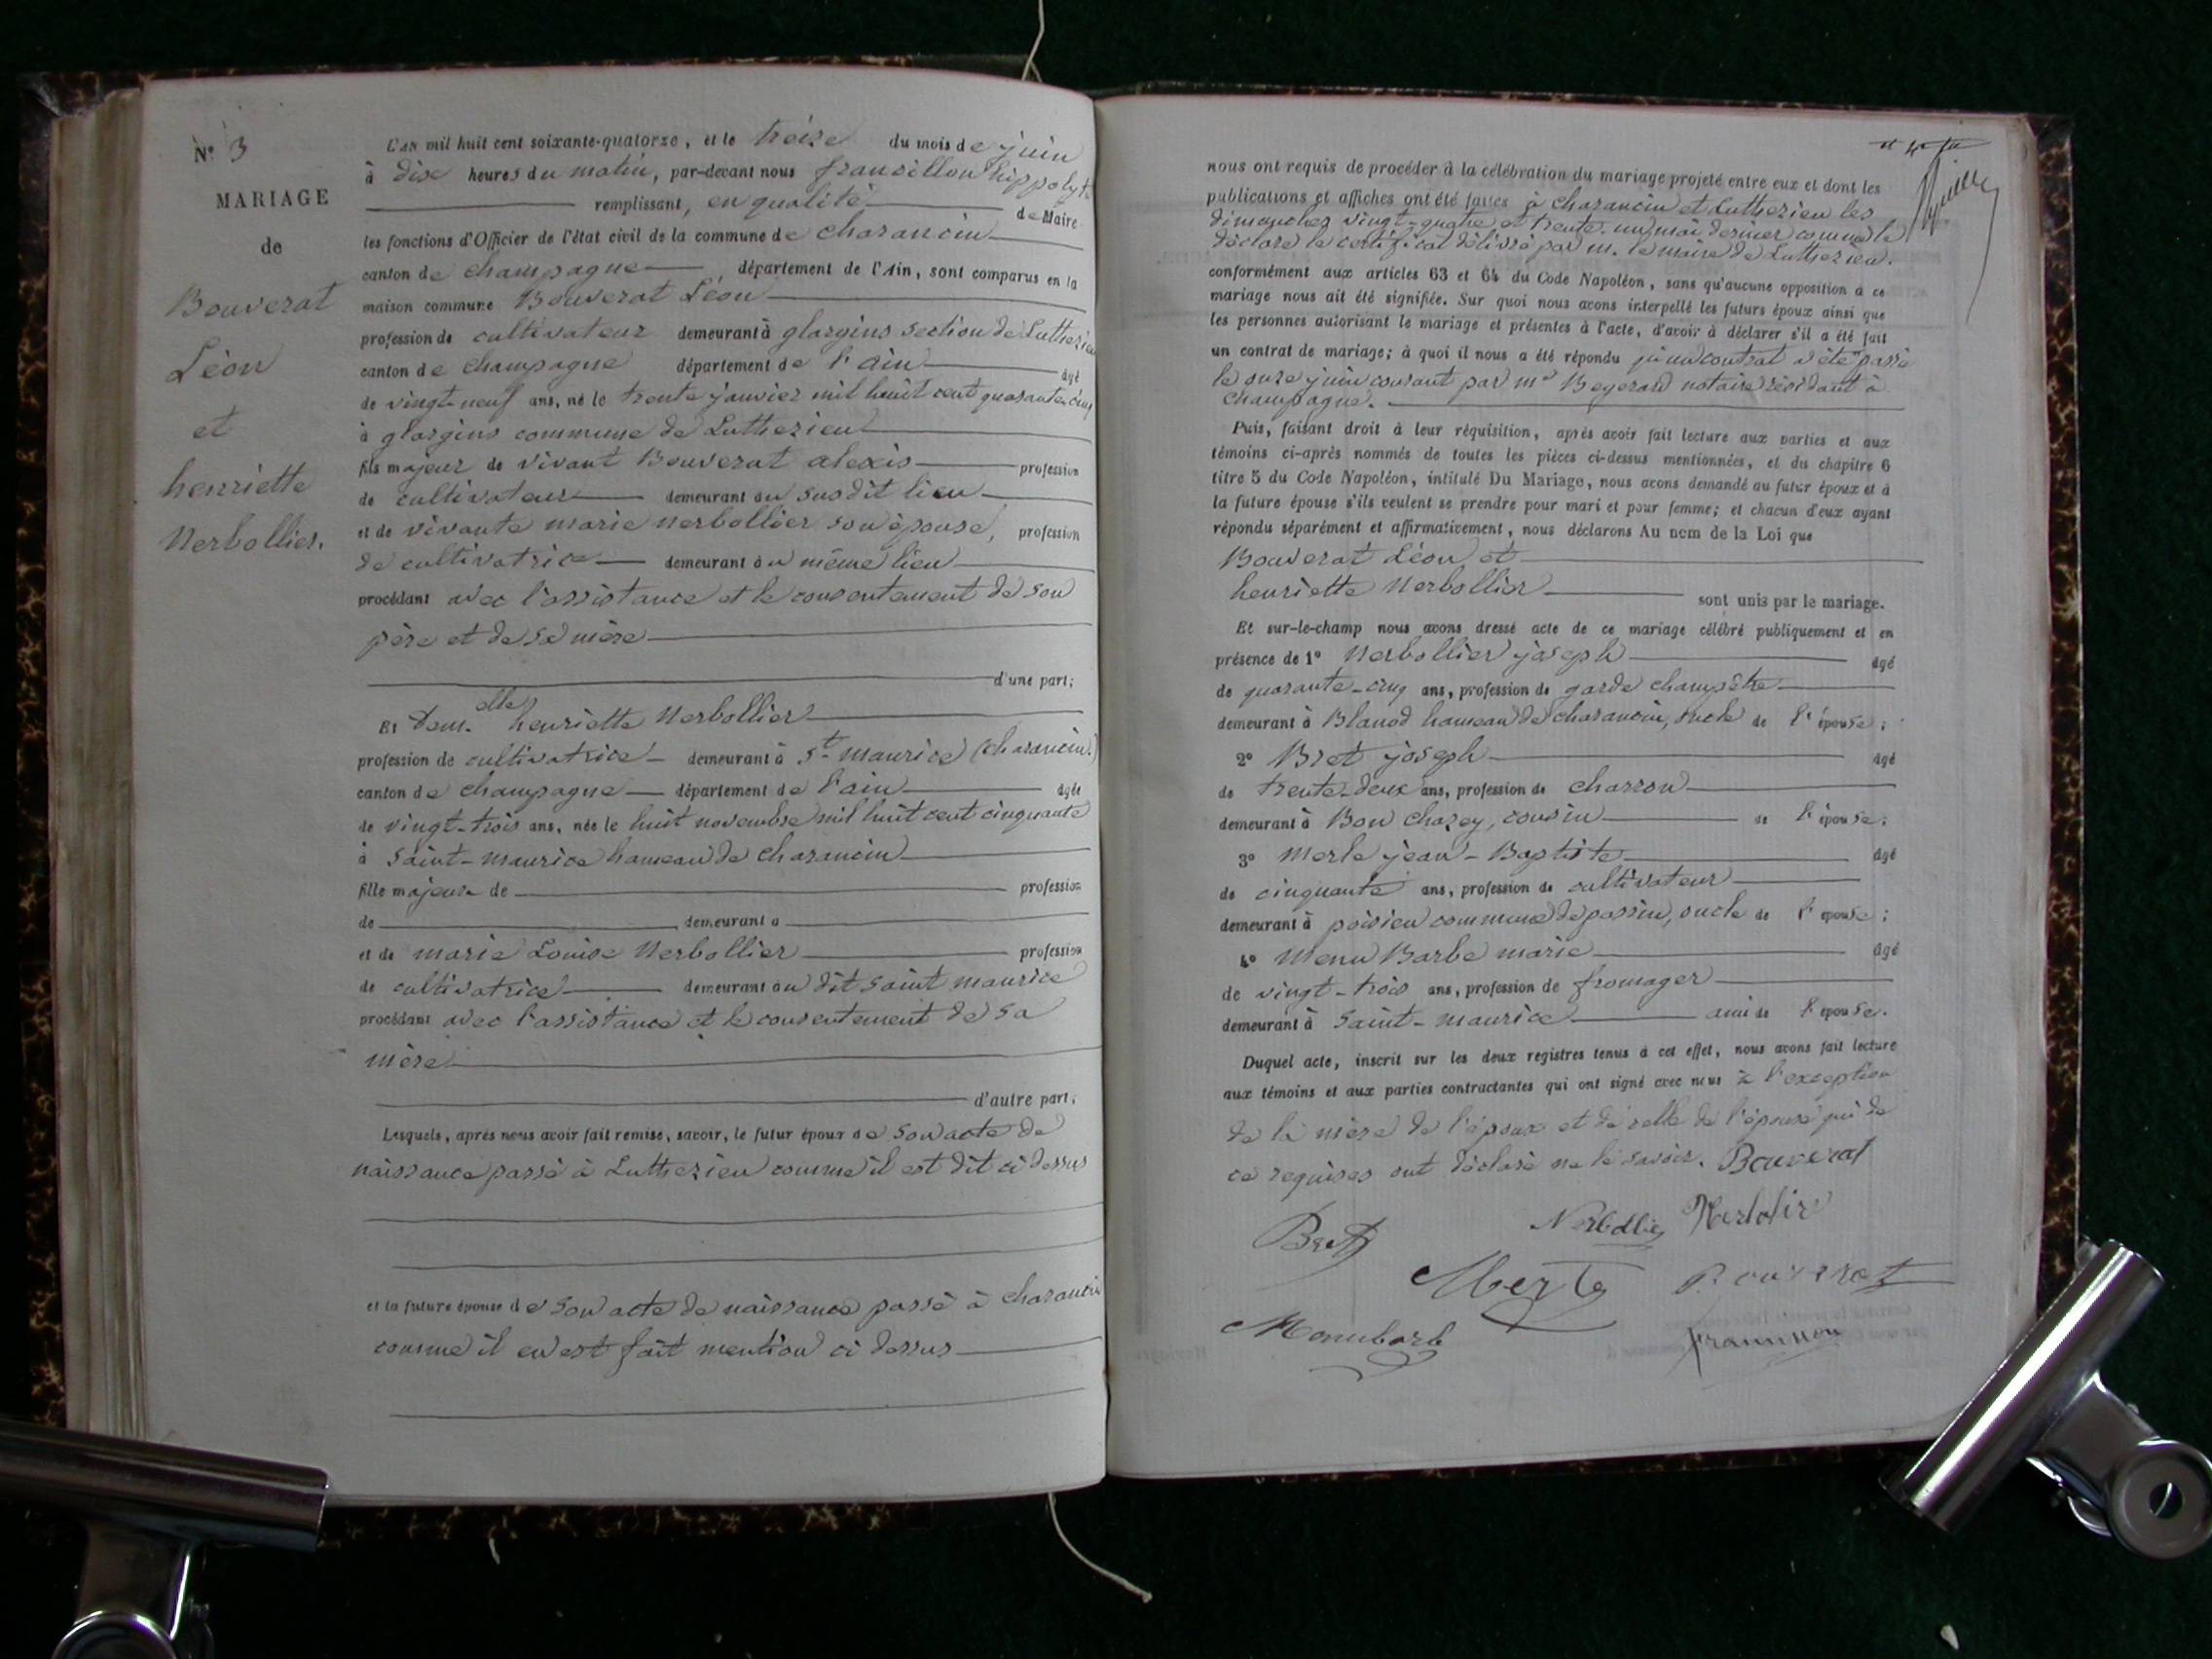 N° 3
MARIAGE
de
Bouverat
Léon
et
henriette
Nerbollier.
L'an mil huit cent soixante-quatorze, et le treize du mois de juin
à dix heures du matin, par-devant nous francillon hippolyte
remplissant, en qualité de Maire
les fonctions d'Officier de l'état civil de la commune de charancin
canton de champagne, département de l'Ain, sont comparus en la
maison commune Bouverat Léon
profession de cultivateur demeurant à glargins section de Luthezieu
canton de champagne département de l'ain âgé
de vingt-neuf ans, né le trente janvier mil huit cent quarante cinq
à glargins commune de Luthezieu
fils majeur de vivant Bouverat alexis profession
de cultivateur demeurant au susdit lieu
et de vivante marie nerbollier son épouse, profession
de cultivatrice demeurant au même lieu
procédant avec l'assistance et le consentement de son
père et de sa mère
d'une part;
Et Dem.elle henriette Nerbollier
profession de cultivatrice demeurant à St maurice (charancin)
canton de champagne département de l'ain âgée
de vingt-trois ans, née le huit novembre mil huit cent cinquante
à Saint-maurice hameau de charancin
fille majeure de profession
de demeurant à
et de marie Louise Nerbollier profession
de cultivatrice demeurant au dit saint maurice
procédant avec l'assistance et le consentement de sa
mère
d'autre part,
Lesquels, après nous avoir fait remise, savoir, le futur époux de son acte de
naissance passé à Luthezieu comme il est dit ci dessus
et la future épouse de son acte de naissance passé à charancin
comme il en est fait mention ci dessus
nous ont requis de procéder à la célébration du mariage projeté entre eux et dont les
publications et affiches ont été faites à charancin et Luthezieu les
dimanches vingt-quatre et trente-un mai dernier comme le
déclare le certificat délivré par m. le maire de Luthezieu.
conformément aux articles 63 et 64 du Code Napoléon, sans qu'aucune opposition à ce
mariage nous ait été signifiée. Sur quoi nous avons interpellé les futurs époux ainsi que
les personnes autorisant le mariage et présentes à l'acte, d'avoir à déclarer s'il a été fait
un contrat de mariage; à quoi il nous a été répondu qu'un contrat a été passé
le onze juin courant par me Begerard notaire résidant à
champagne.
Puis, faisant droit à leur réquisition, après avoir fait lecture aux parties et aux
témoins ci-après nommés de toutes les pièces ci-dessus mentionnées, et du chapitre 6
titre 5 du Code Napoléon, intitulé Du Mariage, nous avons demandé au futur époux et à
la future épouse s'ils veulent se prendre pour mari et pour femme; et chacun d'eux ayant
répondu séparément et affirmativement, nous déclarons Au nom de la Loi que
Bouverat Léon et
henriette Nerbollier sont unis par le mariage.
Et sur-le-champ nous avons dressé acte de ce mariage célébré publiquement et en
présence de 1° Nerbollier joseph âgé
de quarante-cinq ans, profession de garde champêtre
demeurant à Blanod hameau de charancin, oncle de l'épouse;
2° Bret joseph âgé
de trente-deux ans, profession de charron
demeurant à Bon chazey, cousin de l'épouse;
3° Merle jean-Baptiste âgé
de cinquante ans, profession de cultivateur
demeurant à poisieu commune de passin, oncle de l'épouse;
4° Menu Barbe marie âgé
de vingt-trois ans, profession de fromager
demeurant à Saint-maurice ami de l'épouse.
Duquel acte, inscrit sur les deux registres tenus à cet effet, nous avons fait lecture
aux témoins et aux parties contractantes qui ont signé avec nous à l'exception
de la mère de l'époux et de celle de l'épouse qui de
ce requises ont déclaré ne le savoir. Bouverat
Bret Nerbollier
Merle Bouverat
Menubarb francillon